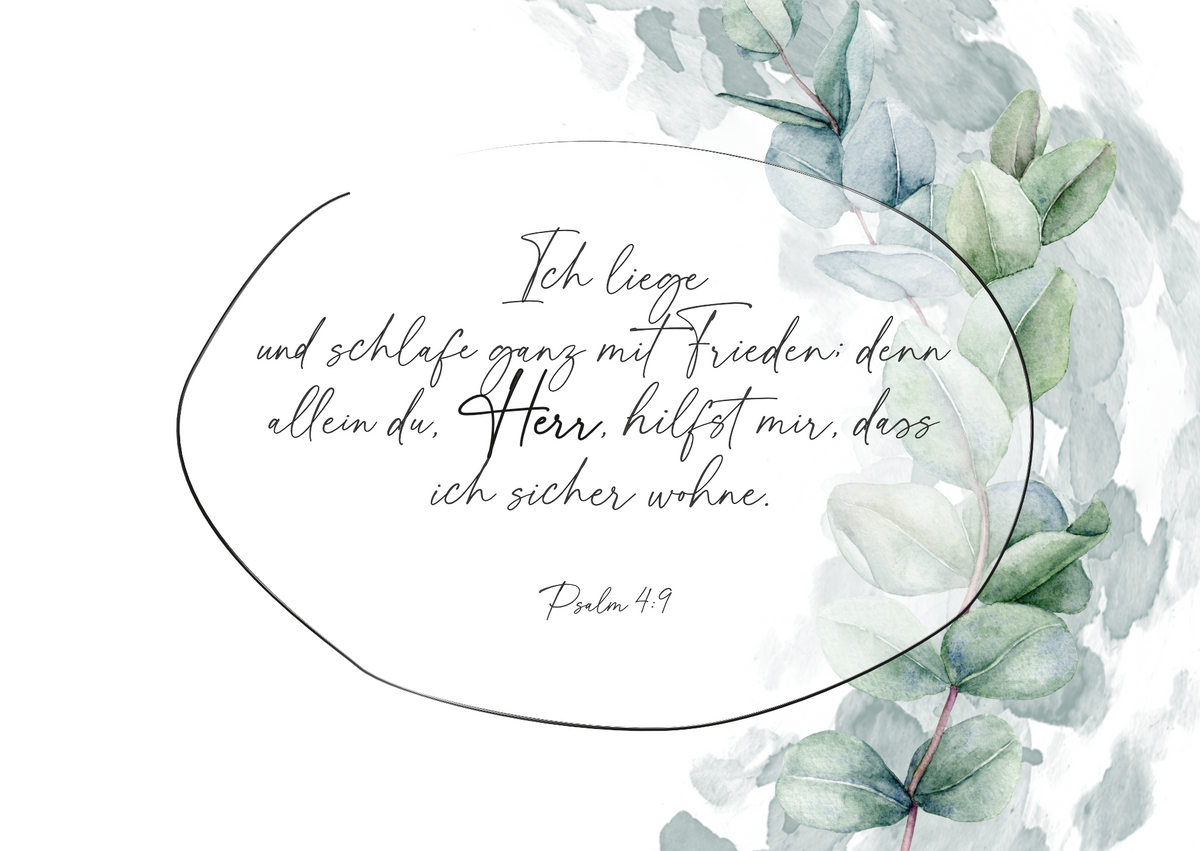 Ich liege
und schlafe ganz mit Frieden; denn
allein du, Herr, hilfst mir, dass
ich sicher wohne.
Psalm 4:9